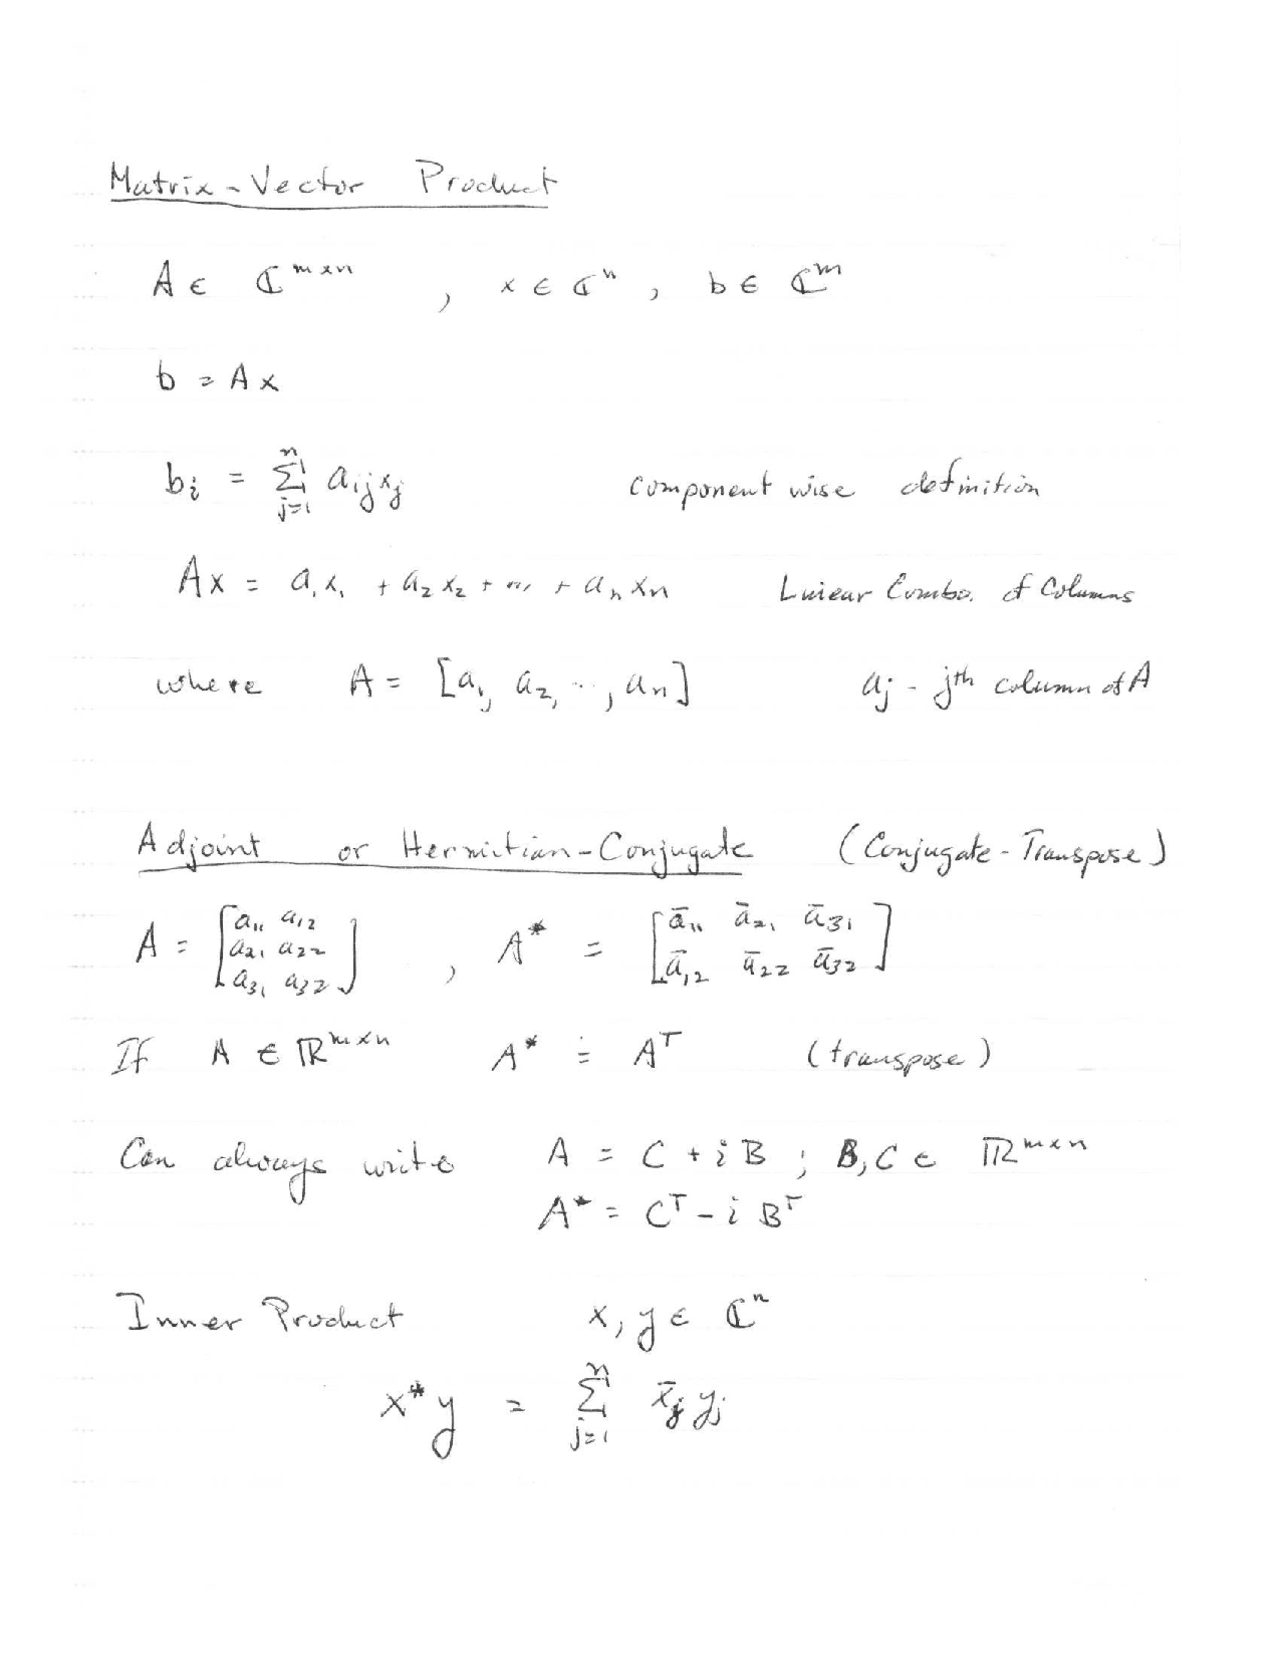 Matrix-Vector Product
A ∈ ℂ^{m×n} , x ∈ ℂ^n , b ∈ ℂ^m
b = Ax
b_i = ∑_{j=1}^{n} a_{ij} x_j component wise definition
Ax = a_1 x_1 + a_2 x_2 + ... + a_n x_n Linear Combo. of Columns
where A = [a_1, a_2, ..., a_n] a_j - jth column of A
Adjoint or Hermitian-Conjugate (Conjugate-Transpose)
A = [a_{11} a_{12}; a_{21} a_{22}; a_{31} a_{32}] , A^* = [ā_{11} ā_{21} ā_{31}; ā_{12} ā_{22} ā_{32}]
If A ∈ ℝ^{m×n} A^* = A^T (transpose)
Can always write A = C + iB ; B, C ∈ ℝ^{m×n}
A^* = C^T - i B^T
Inner Product x, y ∈ ℂ^n
x^* y = ∑_{j=1}^{n} x̄_j y_j